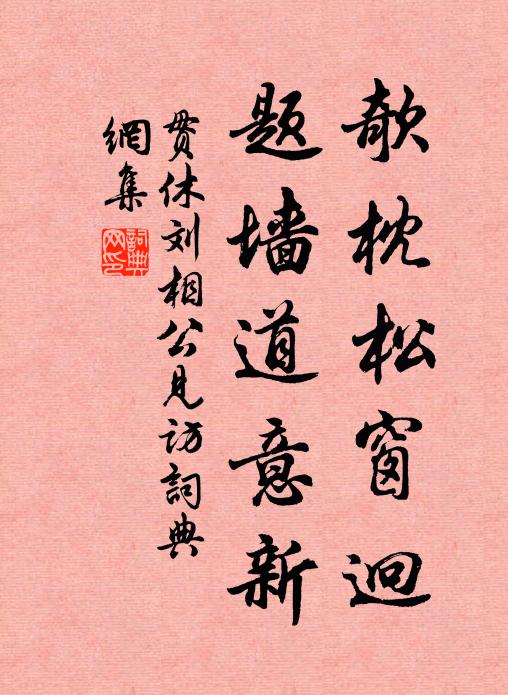 欹枕松窗迥
题墙道意新
贯休刘相公见访詞典
網集
詞典
网印